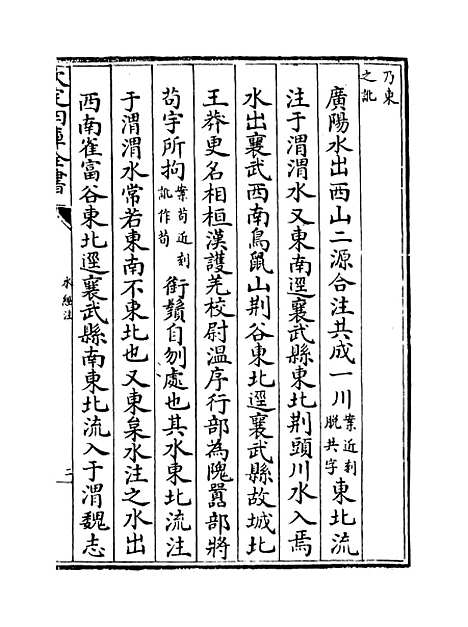 乃東
之訛
廣陽水出西山二源合注共成一川案近刻脱共字東北流
注于渭渭水又東南逕襄武縣東北荆頭川水入焉
水出襄武西南鳥鼠山荆谷東北逕襄武縣故城北
王莽更名相桓漢護羌校尉温序行部為隗囂部將
茍宇所拘案茍近刻訛作苟銜鬚自刎處也其水東北流注
于渭渭水常若東南不東北也又東枲水注之水出
西南雀富谷東北逕襄武縣南東北流入于渭魏志
欽定四庫全書
水經注
二